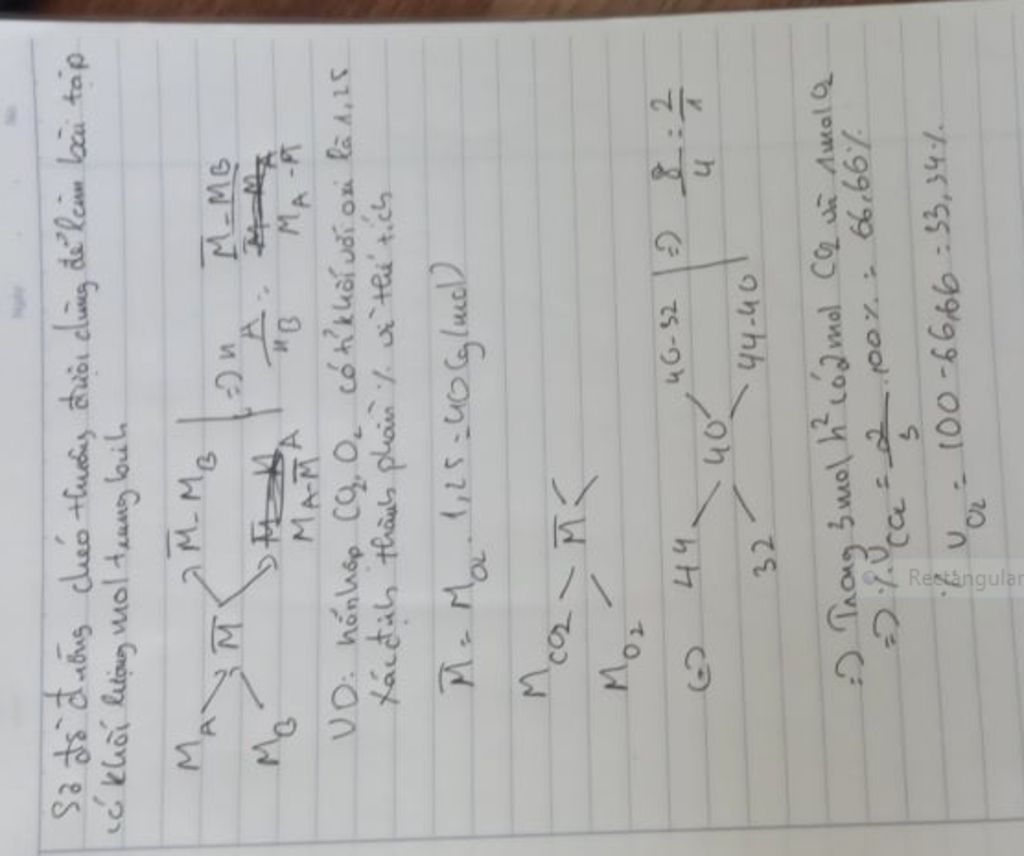 Sơ đồ đường chéo thường được dùng để làm bài tập
có khối lượng mol trung bình
M_A M̄ - M_B
M̄ => n_A / n_B = (M̄ - M_B) / (M_A - M̄)
M_B M_A - M̄
VD: hỗn hợp CO2, O2 có h² khối với oxi là 1,25
Xác định thành phần % về thể tích
M̄ = M_O2 . 1,25 = 40 (g/mol)
M_CO2
M̄
M_O2
<=> 44 40-32
40 => 8/4 = 2/1
32 44-40
=> Trong 3mol h² có 2mol CO2 và 1mol O2
=> %V_CO2 = 2/3 . 100% = 66,66%
%V_O2 = 100 - 66,66 = 33,34%
Rectangular